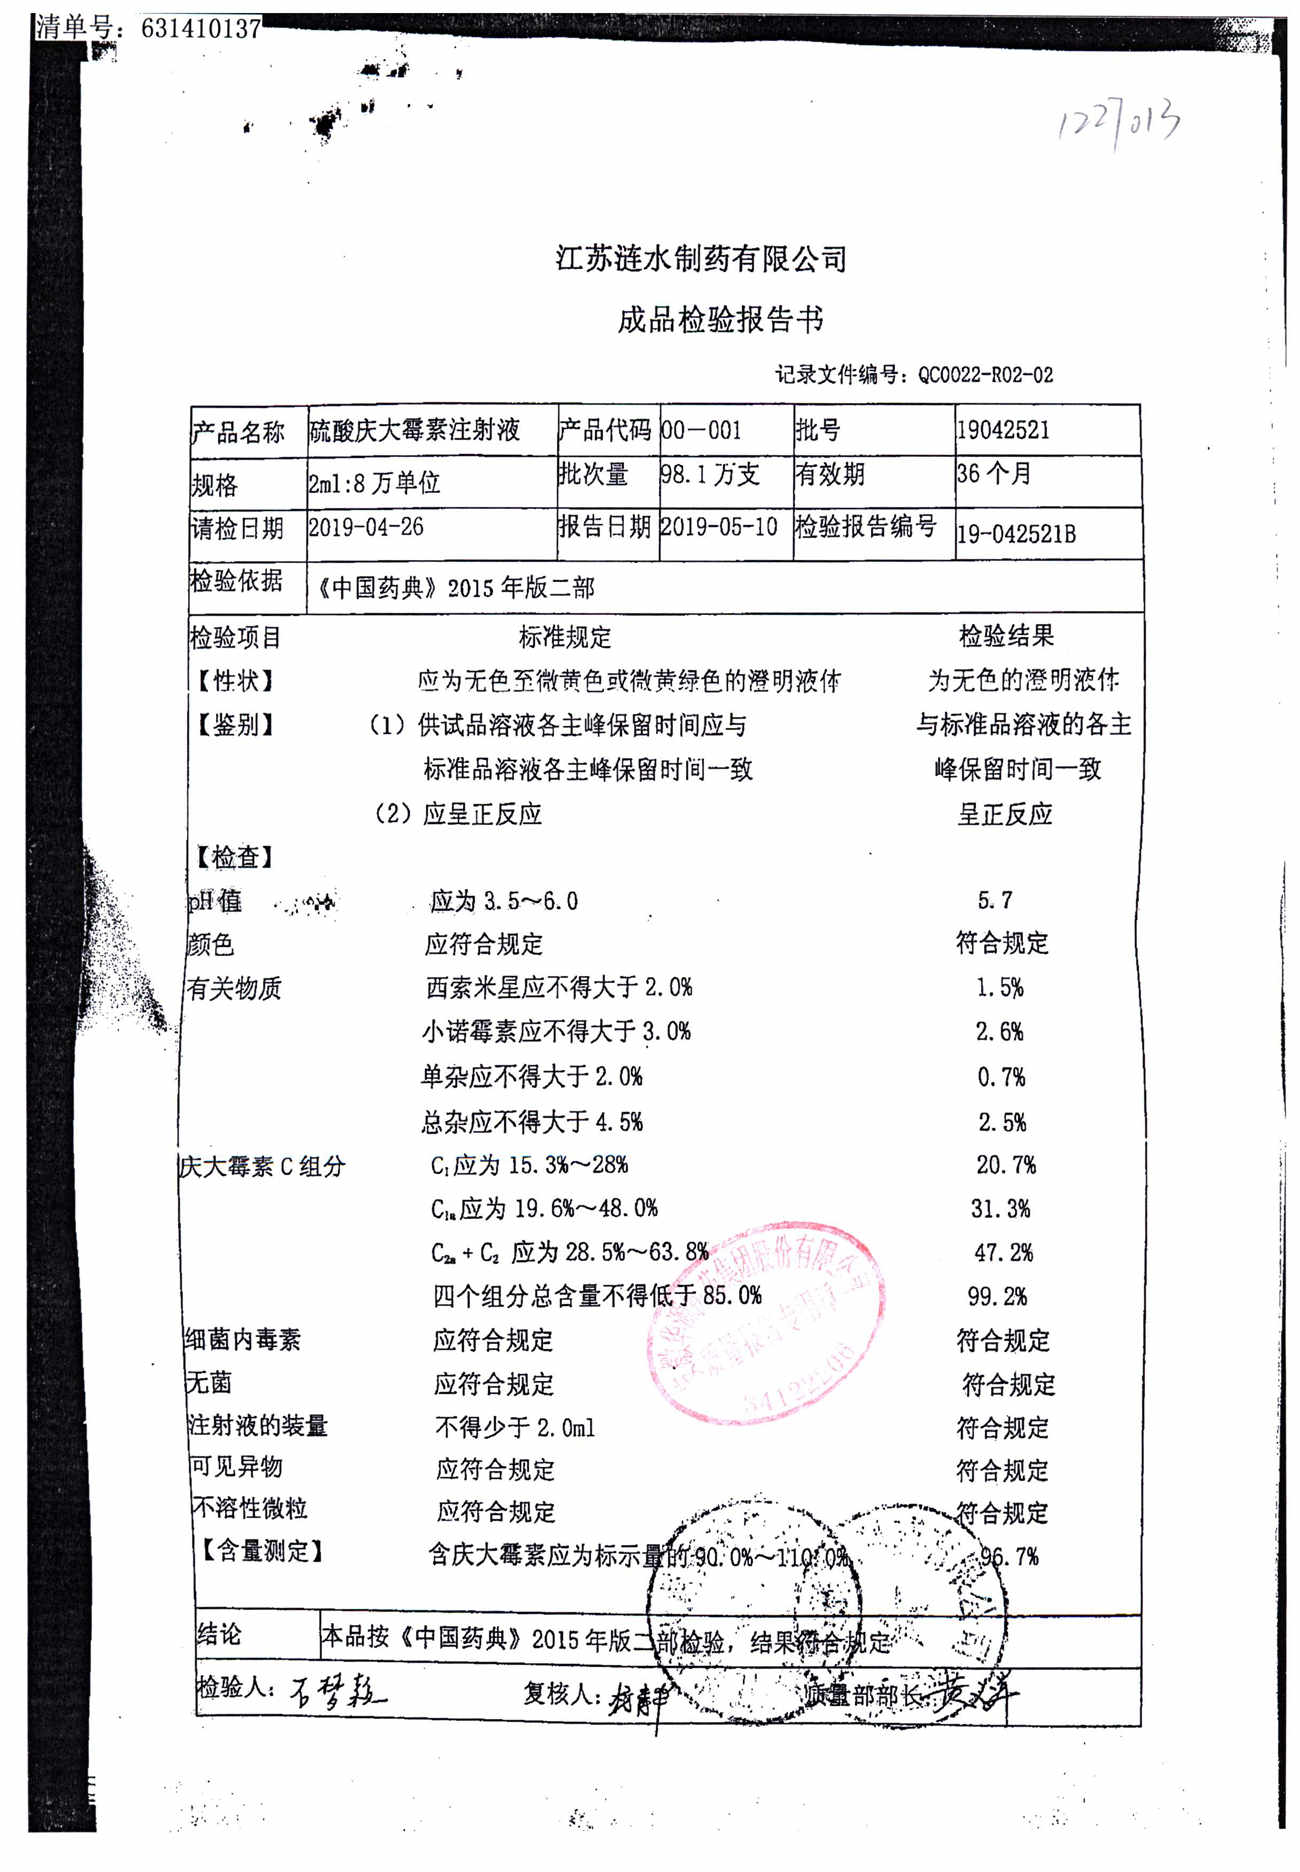 清单号：631410137
1227013
江苏涟水制药有限公司
成品检验报告书
记录文件编号：QC0022-R02-02
产品名称 硫酸庆大霉素注射液 产品代码 00-001 批号 19042521
规格 2ml:8万单位 批次量 98.1万支 有效期 36个月
请检日期 2019-04-26 报告日期 2019-05-10 检验报告编号 19-042521B
检验依据 《中国药典》2015年版二部
检验项目 标准规定 检验结果
【性状】 应为无色至微黄色或微黄绿色的澄明液体 为无色的澄明液体
【鉴别】 （1）供试品溶液各主峰保留时间应与 与标准品溶液的各主
标准品溶液各主峰保留时间一致 峰保留时间一致
（2）应呈正反应 呈正反应
【检查】
pH值 应为3.5～6.0 5.7
颜色 应符合规定 符合规定
有关物质 西索米星应不得大于2.0% 1.5%
小诺霉素应不得大于3.0% 2.6%
单杂应不得大于2.0% 0.7%
总杂应不得大于4.5% 2.5%
庆大霉素C组分 C₁应为15.3%～28% 20.7%
C₁ₐ应为19.6%～48.0% 31.3%
C₂ₐ+C₂ 应为28.5%～63.8% 47.2%
四个组分总含量不得低于85.0% 99.2%
细菌内毒素 应符合规定 符合规定
无菌 应符合规定 符合规定
注射液的装量 不得少于2.0ml 符合规定
可见异物 应符合规定 符合规定
不溶性微粒 应符合规定 符合规定
【含量测定】 含庆大霉素应为标示量的90.0%～110.0% 96.7%
结论 本品按《中国药典》2015年版二部检验，结果符合规定
检验人： 复核人： 质量部部长：